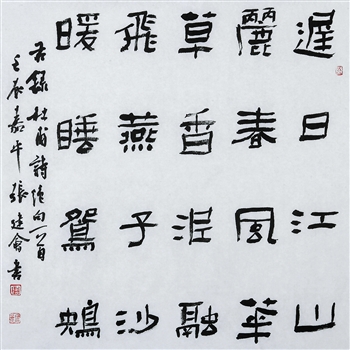 遲日江山
麗春風華
草香泥融
飛燕子沙
暖睡鴛鴦
右錄杜甫詩絕句一首
壬辰嘉平張建會書